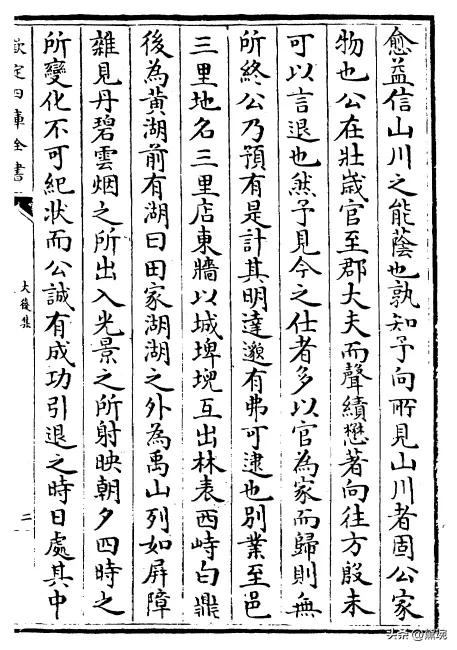 愈益信山川之能蔭也孰知予向所見山川者固公家
物也公在壯歲官至郡大夫而聲績懋著向往方殷未
可以言退也然予見今之仕者多以官為家而歸則無
所終公乃預有是計其明達邈有弗可逮也別業至邑
三里地名三里店東牆以城埤堄互出林表西峙白鼎
後為黃湖前有湖曰田家湖湖之外為禹山列如屏障
雜見丹碧雲烟之所出入光景之所射映朝夕四時之
所變化不可紀狀而公誠有成功引退之時日處其中
欽定四庫全書
大復集
二
头条@佩琬